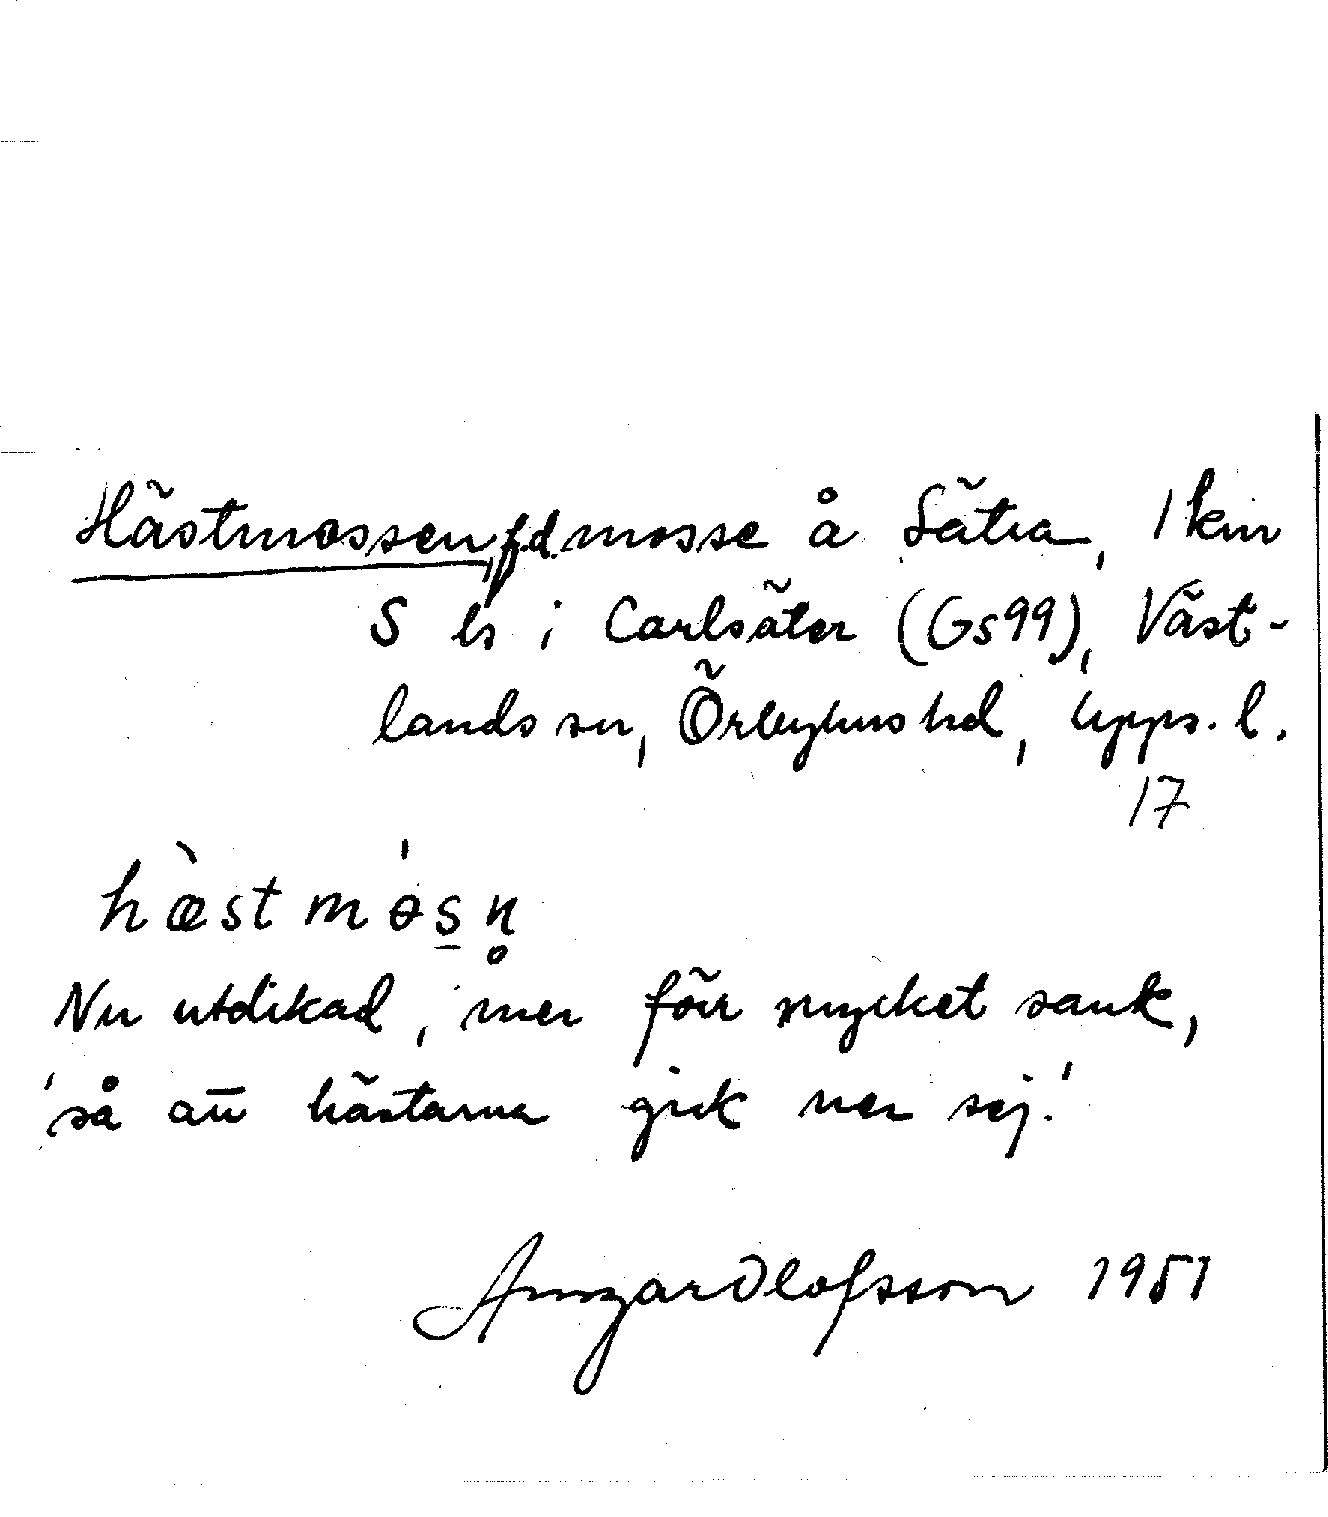 Hästmossen, f.d. mosse å Sätra, 1 km
S ls i Carlsäter (Gs99), Väst-
lands sn, Örbyhus hd, Upps. l.
17
hæ̀stmɵ́s̠n̥
Nu utdikad, men förr mycket sank,
'så att hästarna gick ner sej.'
Ansgar Olofsson 1951